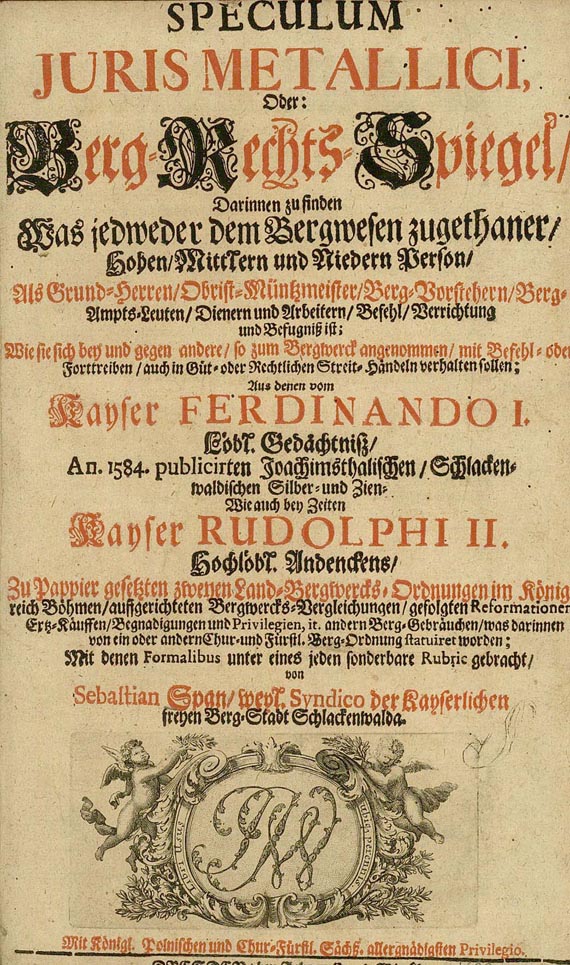 SPECULUM
JURIS METALLICI,
Oder:
Berg-Rechts-Spiegel/
Darinnen zu finden
Was jedweder dem Bergwesen zugethaner/
Hohen/Mittlern und Niedern Person/
Als Grund-Herren/Obrist-Müntzmeister/Berg-Vorstehern/Berg-
Ampts-Leuten/Dienern und Arbeitern/Befehl/Verrichtung
und Befugniß ist;
Wie sie sich bey und gegen andere/so zum Bergwerck angenommen/mit Befehl- oder
Forttreiben/auch in Güt- oder Rechtlichen Streit-Händeln verhalten sollen;
Aus denen vom
Kayser FERDINANDO I.
Löbl. Gedächtniß/
An. 1584. publicirten Joachimsthalischen/Schlacken-
waldischen Silber- und Zien-
Wie auch bey Zeiten
Kayser RUDOLPHI II.
Hochlöbl. Andenckens/
Zu Pappier gesetzten zweyen Land-Bergwercks-Ordnungen im König
reich Böhmen/auffgerichteten Bergwercks-Vergleichungen/gefolgten Reformationen
Ertz-Käuffen/Begnadigungen und Privilegien, it. andern Berg-Gebräuchen/was darinnen
von ein oder andern Chur- und Fürstl. Berg-Ordnung statuiret worden;
Mit denen Formalibus unter eines jeden sonderbare Rubric gebracht/
von
Sebastian Span/weyl. Syndico der Kayserlichen
freyen Berg-Stadt Schlackenwalda.
Mit Königl. Polnischen und Chur-Fürstl. Sächß. allergnädigsten Privilegio.